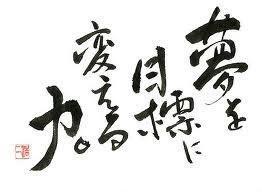 夢を
目標に
変える
力。